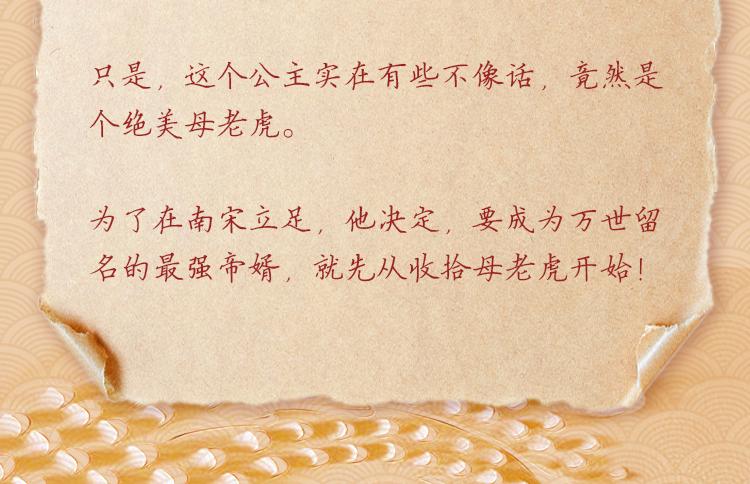 只是，这个公主实在有些不像话，竟然是
个绝美母老虎。
为了在南宋立足，他决定，要成为万世留
名的最强帝婿，就先从收拾母老虎开始！